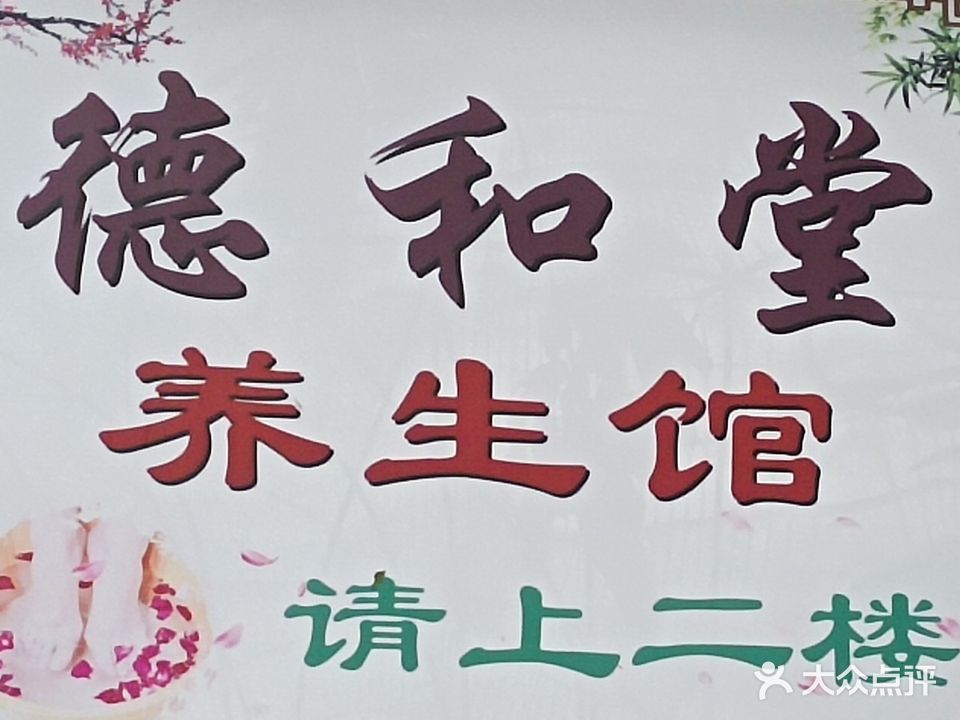 德和堂
养生馆
请上二楼
大众点评